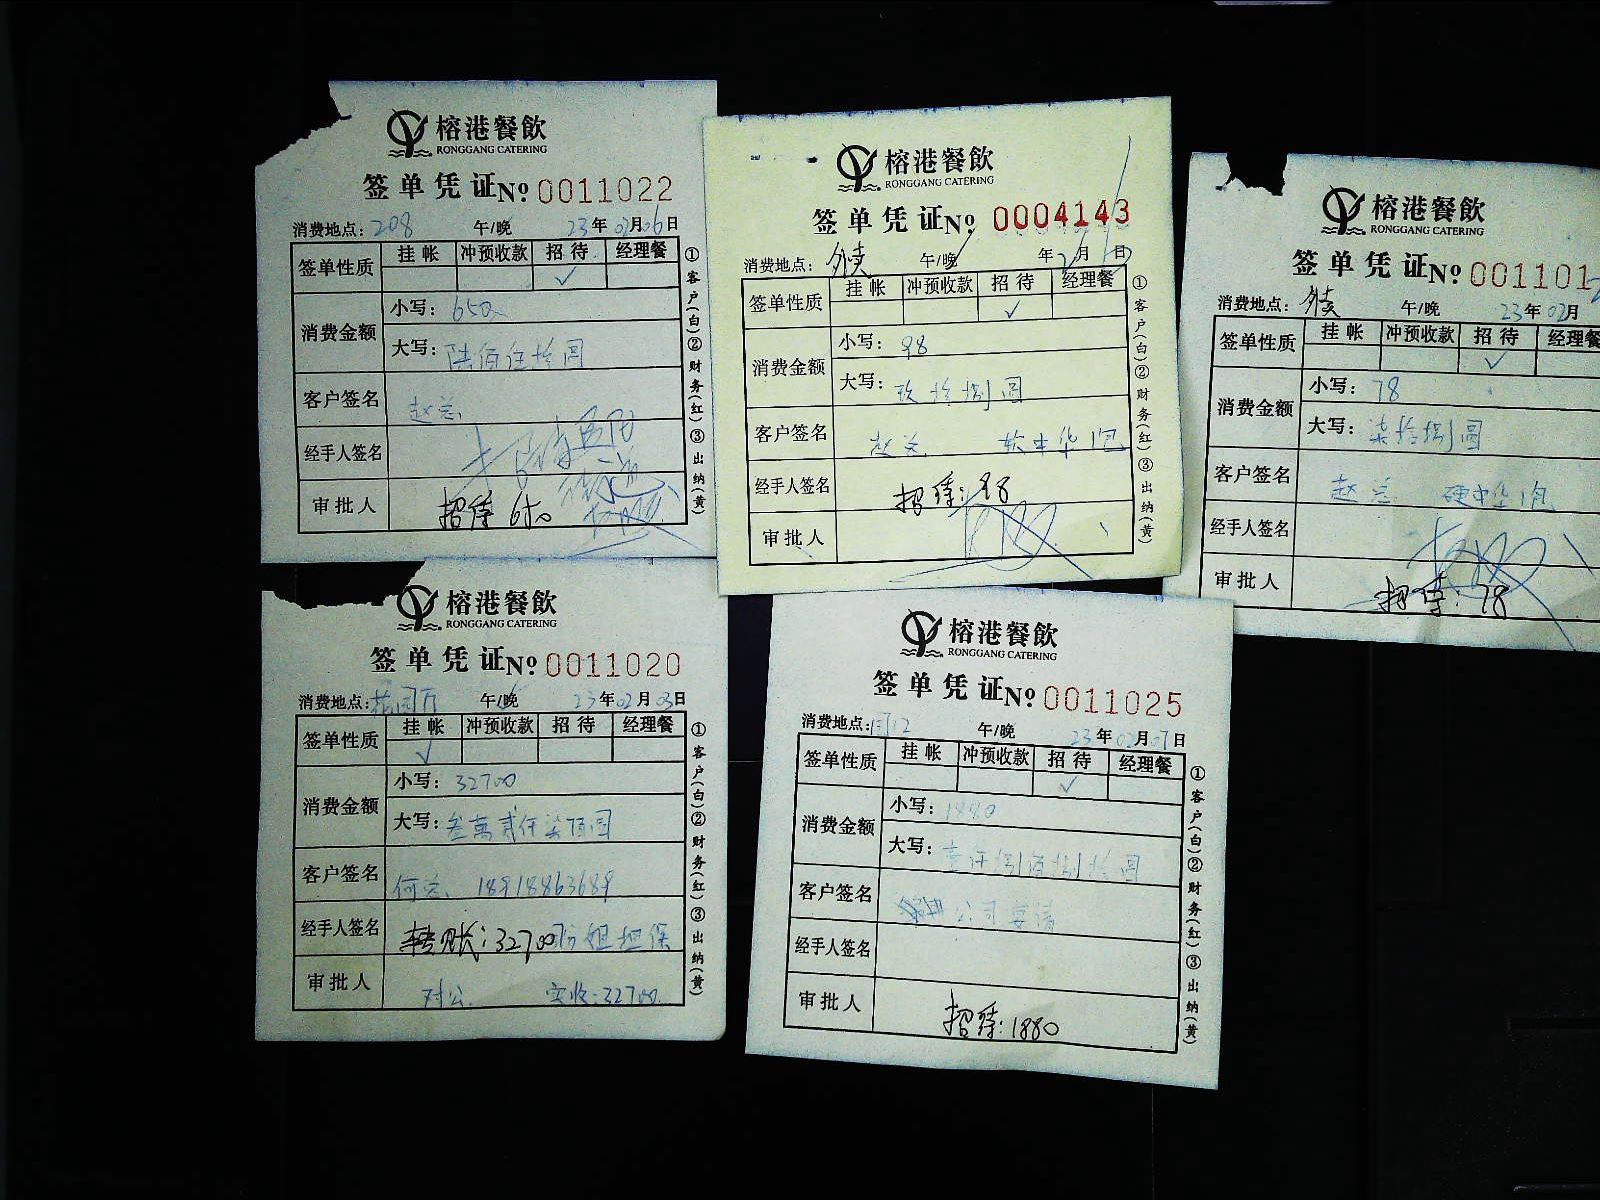 榕港餐飲
RONGGANG CATERING
签单凭证№ 0011022
消费地点: 208 午/晚 23年02月06日
签单性质 挂帐 冲预收款 招待 经理餐
✓
消费金额 小写: 650
大写: 陆佰伍拾圆
客户签名 赵总
经手人签名
审批人 招待 650
①客户(白)②财务(红)③出纳(黄)
榕港餐飲
RONGGANG CATERING
签单凭证№ 0004143
消费地点: 外卖 午/晚 年2月日
签单性质 挂帐 冲预收款 招待 经理餐
✓
消费金额 小写: 98
大写: 玖拾捌圆
客户签名 赵总 软中华1包
经手人签名 招待: 98
审批人
①客户(白)②财务(红)③出纳(黄)
榕港餐飲
RONGGANG CATERING
签单凭证№ 001101
消费地点: 外卖 午/晚 23年02月
签单性质 挂帐 冲预收款 招待 经理餐
✓
消费金额 小写: 78
大写: 柒拾捌圆
客户签名 赵总 硬中华1包
经手人签名
审批人 招待: 78
榕港餐飲
RONGGANG CATERING
签单凭证№ 0011020
消费地点: 花园厅 午/晚 23年02月03日
签单性质 挂帐 冲预收款 招待 经理餐
✓
消费金额 小写: 32700
大写: 叁萬贰仟柒佰圆
客户签名 何总 18918863689
经手人签名 转账: 32700 姐担保
审批人 对公 实收: 32700
①客户(白)②财务(红)③出纳(黄)
榕港餐飲
RONGGANG CATERING
签单凭证№ 0011025
消费地点: 午/晚 23年02月07日
签单性质 挂帐 冲预收款 招待 经理餐
✓
消费金额 小写: 1880
大写: 壹仟捌佰捌拾圆
客户签名 公司宴请
经手人签名
审批人 招待: 1880
①客户(白)②财务(红)③出纳(黄)